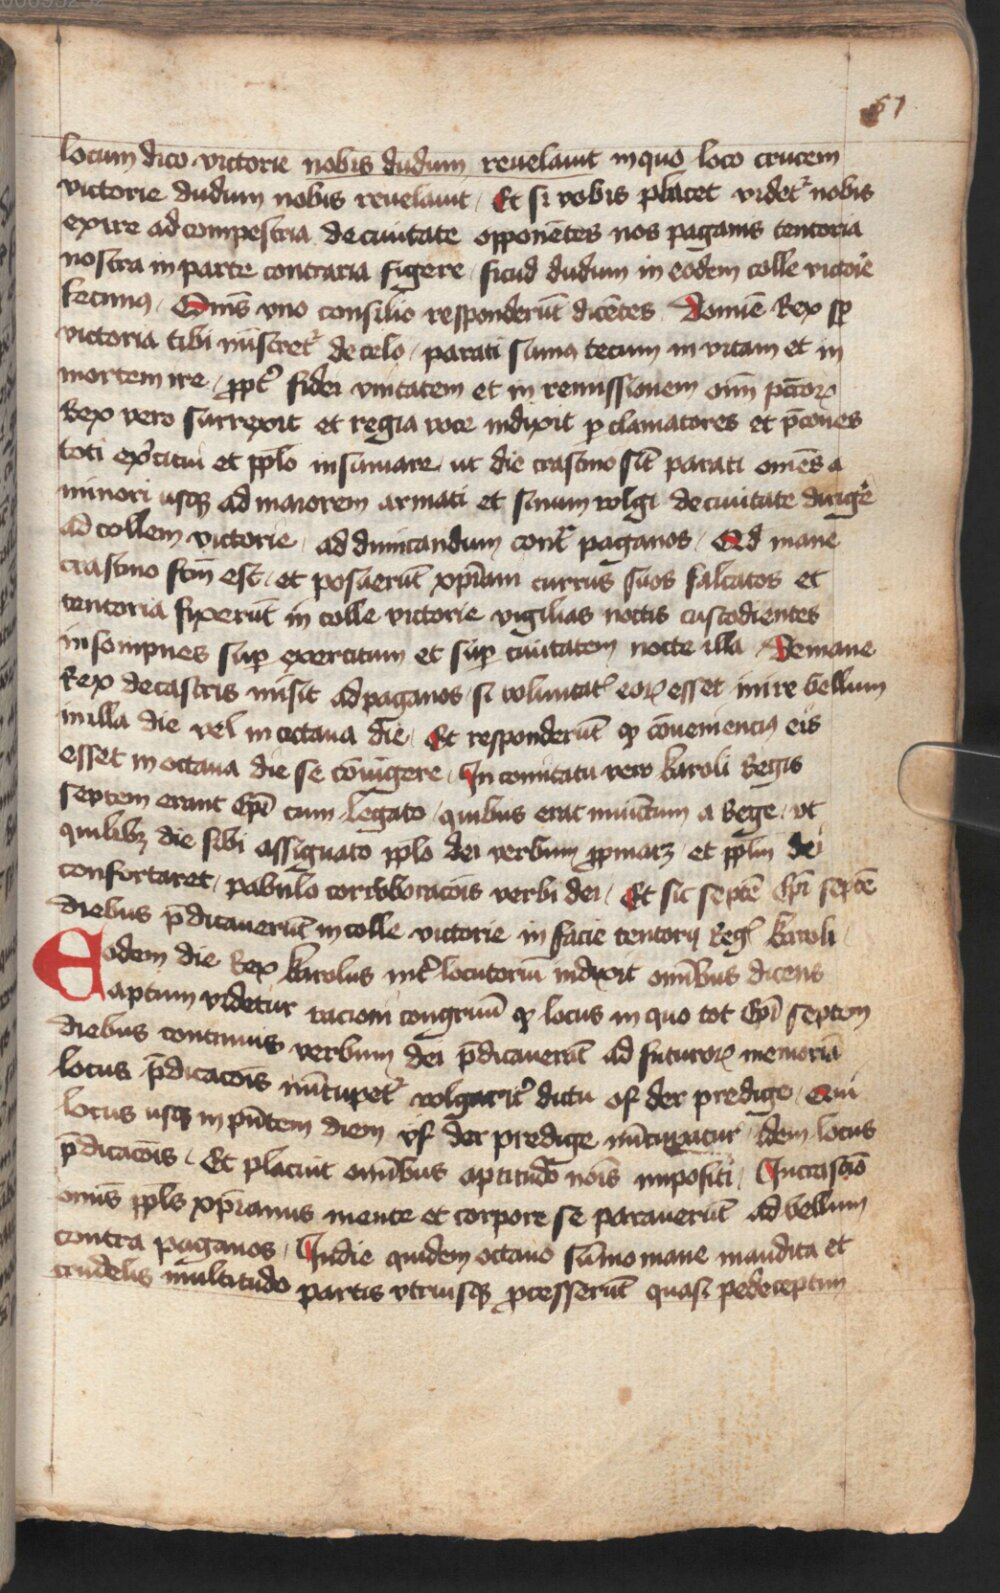 57
locum dico victorie nobis dudum reuelauit in quo loco crucem
victorie dudum nobis reuelauit Et si vobis placet videt᷑ nobis
exire ad compestria de ciuitate opponētes nos paganis tentoria
nostra in parte contraria figere sicud dudum in eodem colle victoīe
fecimus Om̄s vno consilio responderūt dicētes Domine Rex sp̄
victoria tibi mīstret᷑ de celo parati sumus tecum in vitam et in
mortem ire ꝓpt᷑ fidei vnitatem et in remissionem oīm pctōꝝ
Rex vero surrexit et regia voce indixit p clamatores et p̄cones
toti ex̄citui et pplo insinuare ut die crastino sīt parati om̄es a
minori usqꝫ ad maiorem armati et simum volgi de ciuitate dirige᷑
ad collem victorie ad dimicandum cont᷑ paganos Qd mane
crastino fcm̄ est et posuerūt xp̄iani currus suos falcatos et
tentoria fixerūt in colle victorie vigilias noctis custodientes
insompnes sup exercitum et sup ciuitatem nocte illa De mane
Rex de castris misit ad paganos si voluntat᷑ eoꝝ esset inire bellum
in illa die vel in octaua die Et responderūt ꝙ cōueniencius eis
esset in octaua die se cōuigere In comitatu vero karoli Regis
septem erant Ep̄i cum legato quibus erat iniunctum a Rege vt
quilibꝫ die sibi assignato pplo dei verbum ꝓpinaꝫ et pplm̄ dei
confortaret pabulo corroboracōis verbi dei Et sic septē Ep̄i septē
diebus p̄dicauerūt in colle victorie in facie tentorij Reg᷑ karoli
Eodem die Rex karolus int᷑ locutoriū indixit om̄ibus dicens
aptum videtur racioni congruū ꝙ locus in quo tot Ep̄i septem
diebus continuis verbum dei p̄dicauerūt ad futuroꝝ memoriā
locus p̄dicacōis nūcupet᷑ volgarit᷑ dictu of der predige Qui
locus usqꝫ in pn̄tem diem vf der predige nūcupatur idem locus
p̄dicacōis Et placuit om̄ibus aptitudo nōis impositi In crastīo
om̄is ppls xp̄ianus mente et corpore se parauerūt ad bellum
contra paganos In die quidem octauo sūmo mane inaudita et
crudelis multitudo partis vtriusqꝫ ꝓcesserūt quasi pedeceptim